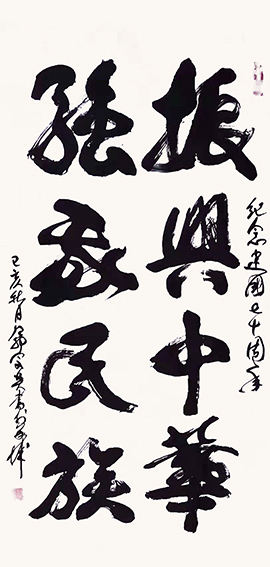 纪念建國七十周年
振興中華
強我民族
己亥秋月